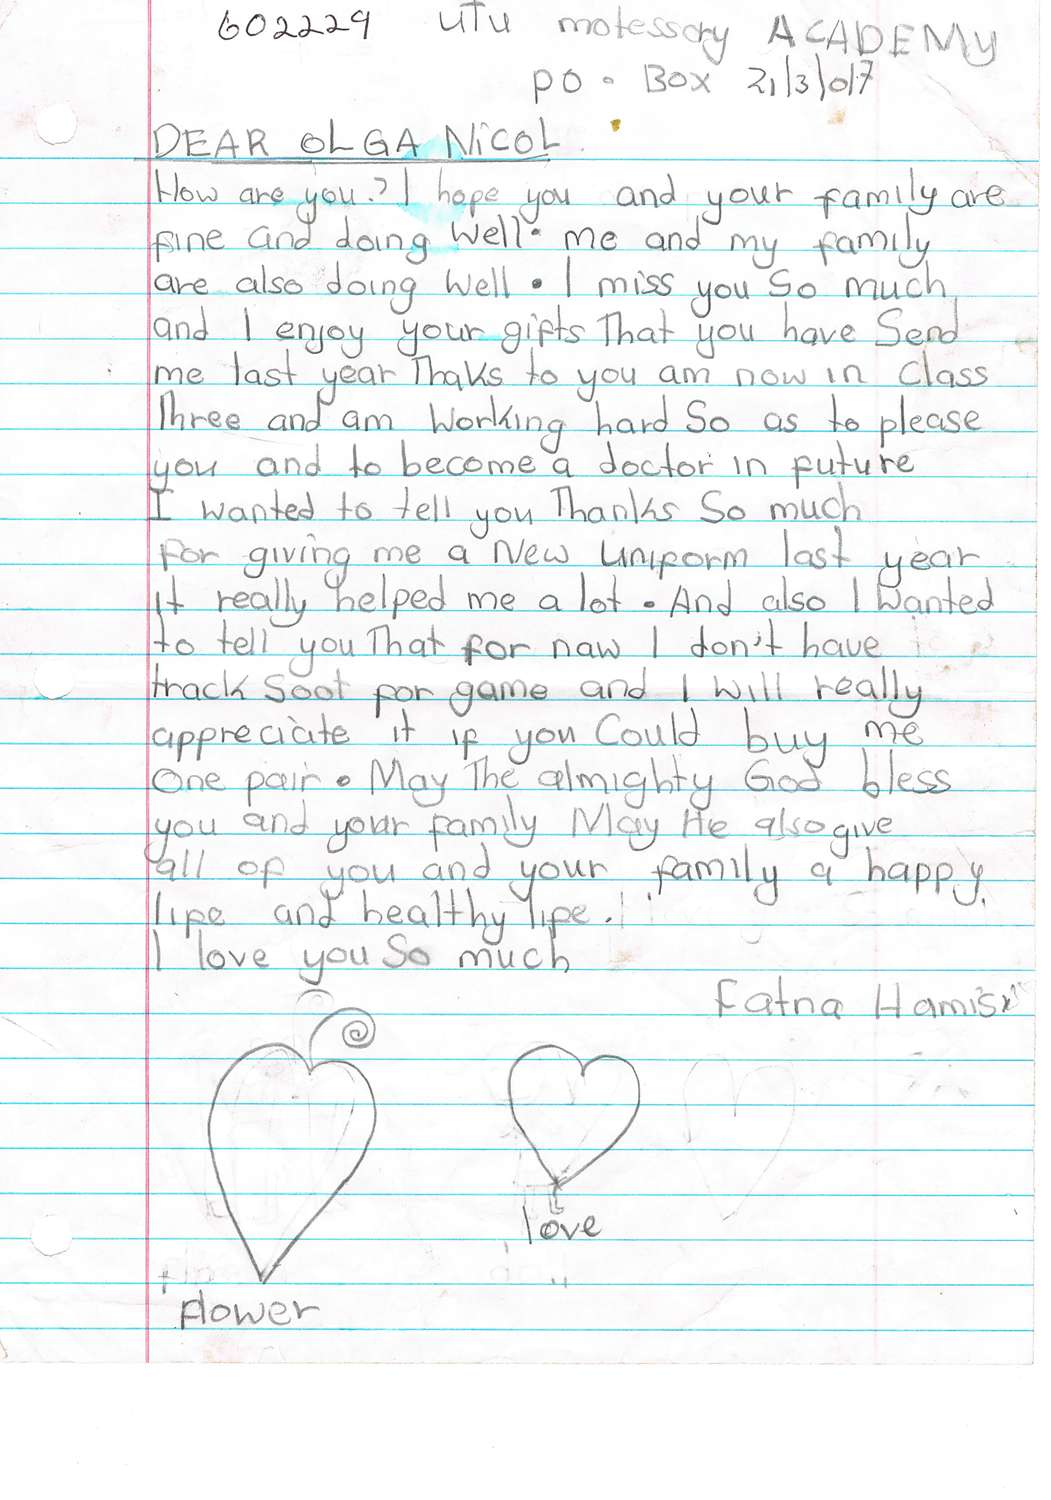 602229 UTU motessory ACADEMY
PO. Box 21/3/017
DEAR OLGA NICOL
How are you? I hope you and your family are
fine and doing well. me and my family
are also doing well. I miss you So much
and I enjoy your gifts That you have Send
me last year Thaks to you am now in class
Three and am Working hard So as to please
you and to become a doctor in future
I wanted to tell you Thanks So much
for giving me a New uniform last year
it really helped me a lot. And also I wanted
to tell you That for naw I don't have
track Soot for game and I will really
appreciate it if you Could buy me
One pair. May The almighty God bless
you and your family May He also give
all of you and your family a happy
life and healthy life.
I love you So much
Fatna Hamisi
love
flower